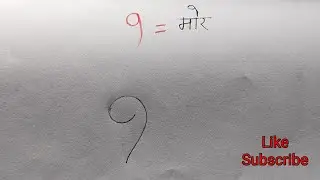 १ = मोर
१
Like
Subscribe